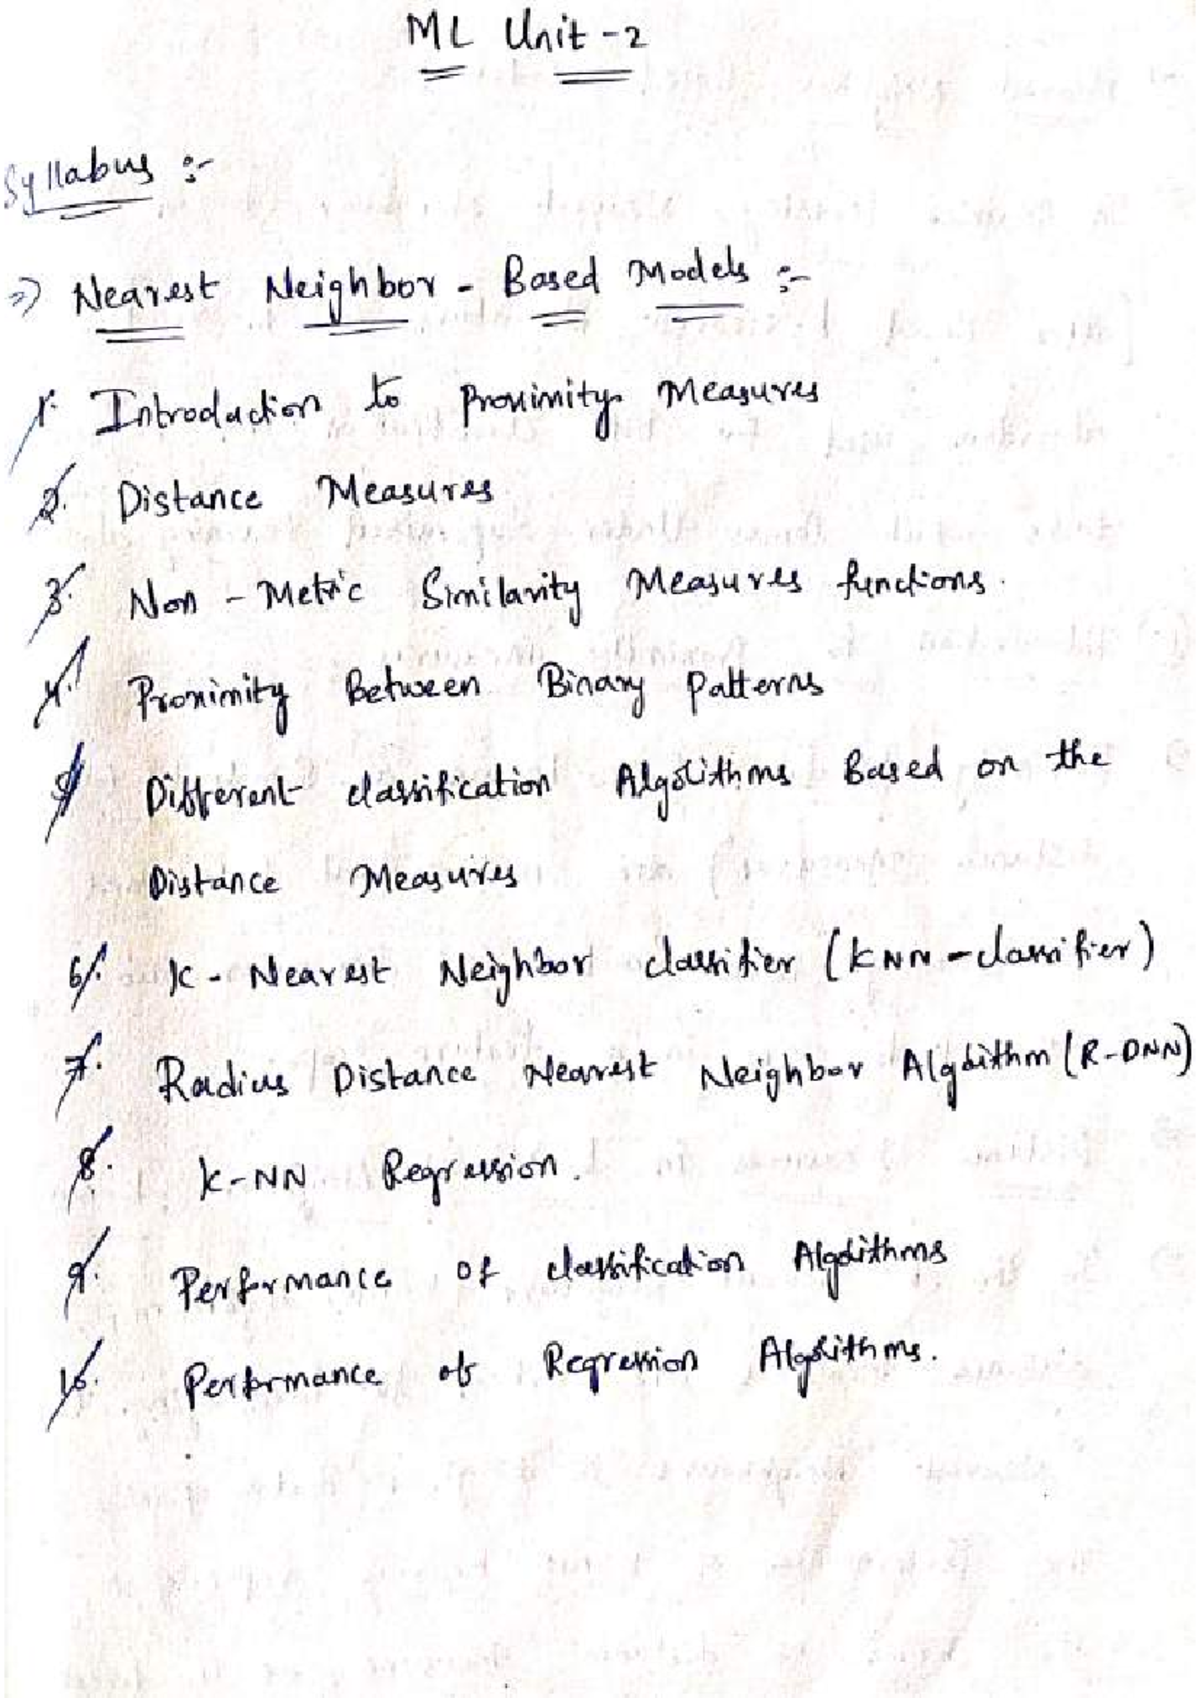 ML Unit -2
Syllabus :-
=> Nearest Neighbor - Based Models :-
1. Introduction to Proximity Measures
2. Distance Measures
3. Non - Metric Similarity Measures functions.
4. Proximity Between Binary Patterns
5. Different classification Algorithms Based on the
Distance Measures
6. K - Nearest Neighbor classifier (KNN - classifier)
7. Radius Distance Nearest Neighbor Algorithm (R-DNN)
8. K-NN Regression.
9. Performance of classification Algorithms
10. Performance of Regression Algorithms.